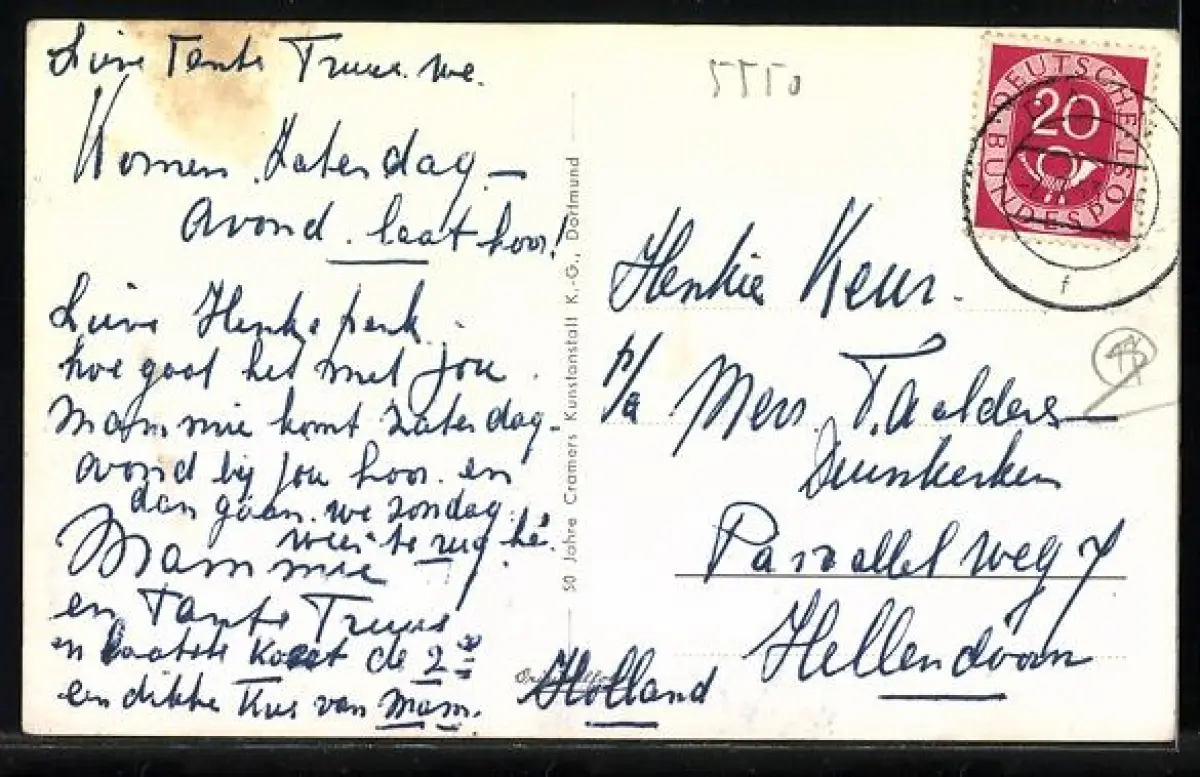 Lieve Tante Truus. we.
Komen Zaterdag –
avond. laat hoor!
Lieve Henkepenk.
hoe gaat het met jou.
Mammie komt zaterdag-
avond bij jou hoor. en
dan gaan. we zondag.
weer terug hè.
Mammie
en Tante Truus
en laatste Kaart de 2e
een dikke Kus van Mam.
50 Jahre Cramers Kunstanstalt K.-G., Dortmund
5550
DEUTSCHE BUNDESPOST
20
f
Henkie Keur.
p/a Mevr. T. Aalders –
Duinkerken
Parallelweg 7
Hellendoorn
Holland